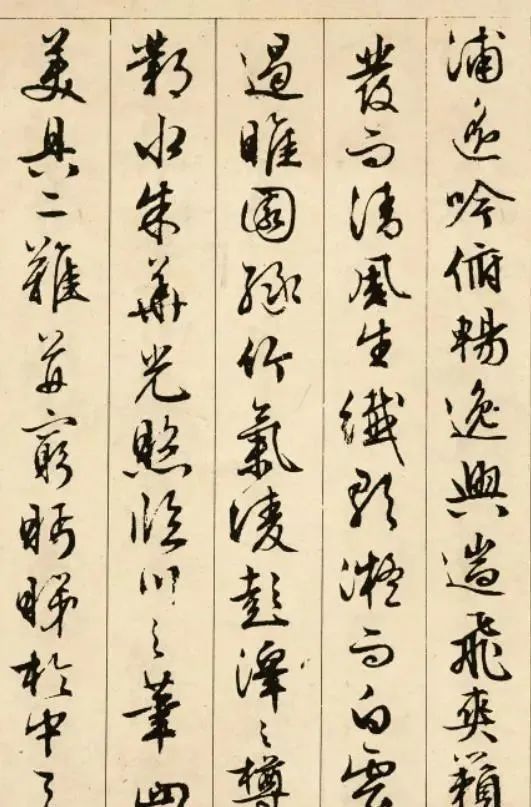 浦遙吟俯暢逸興遄飛爽籟
發而清風生纖歌凝而白雲
遏睢園綠竹氣凌彭澤之樽
鄴水朱華光照臨川之筆四
美具二難并窮眄睇於中